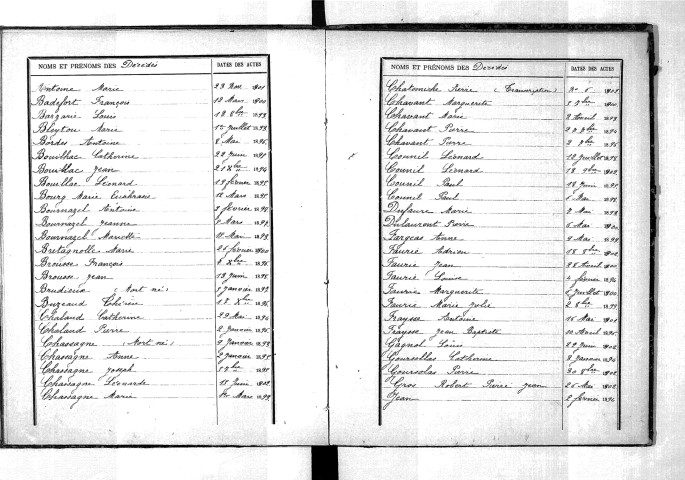 NOMS ET PRÉNOMS DES Décédés DATES DES ACTES
Antoine Marie 23 Nov. 1901
Badefort François 10 Mars 1901
Bargarie Louis 12 8bre 1899
Bleytou Marie Juillet 1899
Bordes Antoine 8 Mai 1895
Bouilhac Catherine 22 Juin 1895
Bouilhac Jean
Bouillac Léonard 13 février 1895
Bourg Marie 12 Mars 1895
Bournazel Antoine 3 février
Bournazel Jeanne Mars 1899
Bournazel Mariette 11 Mai 1898
Bretagnolle Marie 21 février 1900
Brousse François 6 Xbre 1895
Brousse Jean 13 Juin 1895
Brudieux (Mort né) 1 Janvier 1899
Bugeaud Thérèse 12 Xbre 1896
Chalaud Catherine 29 Mai 1894
Chalaud Pierre 2 Janvier 1895
Chassagne (Mort né) 9 Janvier 1899
Chassagne Anne 9 Janvier 1895
Chassagne Joseph 1895
Chassagne Léonarde 18 Juin 1902
Chassagne Marie Mars 1899
NOMS ET PRÉNOMS DES Décédés DATES DES ACTES
Pierre (Transcription) 1901
Chavant Marguerite 1900
Chavant Marie 2 Avril 1898
Chavant Pierre 1894
Chavant Pierre 1895
Counil Léonard 22 Juillet 1895
Counil Léonard 18 9bre 1902
Counil Paul 18 Juin 1895
Counil Paul Mai 1898
Dufaure Marie 2 Mai 1898
Dulaurent Pierre 6 Mai 1900
Fargeas Anne 9 Mai 1899
Faurie Adrien 18 8bre 1902
Faurie Jean 28 Avril 1900
Faurie Louise 4 février 1894
Faurie Marguerite Juillet 1900
Faurie Marie Julie 2 8bre 1899
Fraysse Antoine 16 Mai 1901
Fraysse Jean Baptiste 10 Avril 1895
Gagnol Louis 29 Juin 1902
Goursolas Catherine 8 Janvier 1894
Goursolas Pierre 30 8bre 1902
Gros Robert Pierre Jean 26 Mai 1902
Jean 2 février 1894